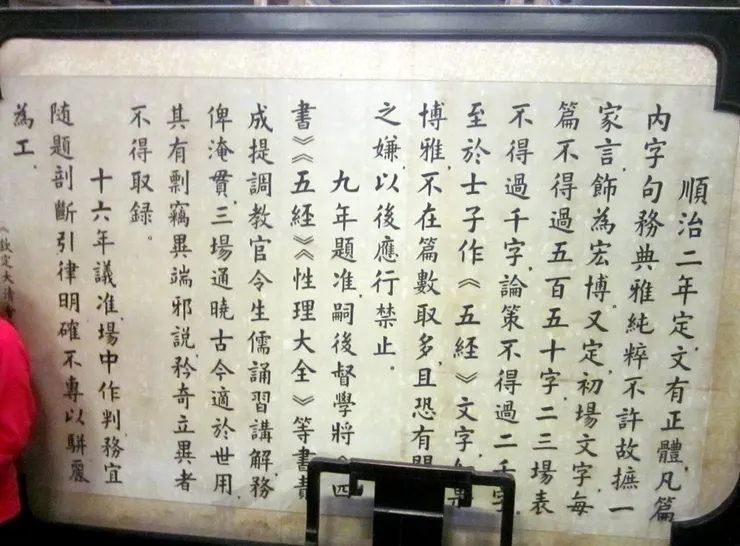 順治二年定,文有正體,凡篇
內字句務典雅純粹不許故摭一
家言,飾為宏博,又定,初場文字,每
篇不得過五百五十字,二三場表
不得過千字,論策不得過二千字.
至於士子作《五經》文字,果
博雅,不在篇數取多,且恐有
之嫌以後應行禁止.
九年題准,嗣後督學將《四
書》《五經》《性理大全》等書責
成提調教官令生儒誦習講解務
俾淹貫,三場通曉古今適於世用,
其有剽竊異端邪說,矜奇立異者
不得取録。
十六年議准,場中作判,務宜
随題剖斷引律明確不專以駢麗
為工.
《欽定大清